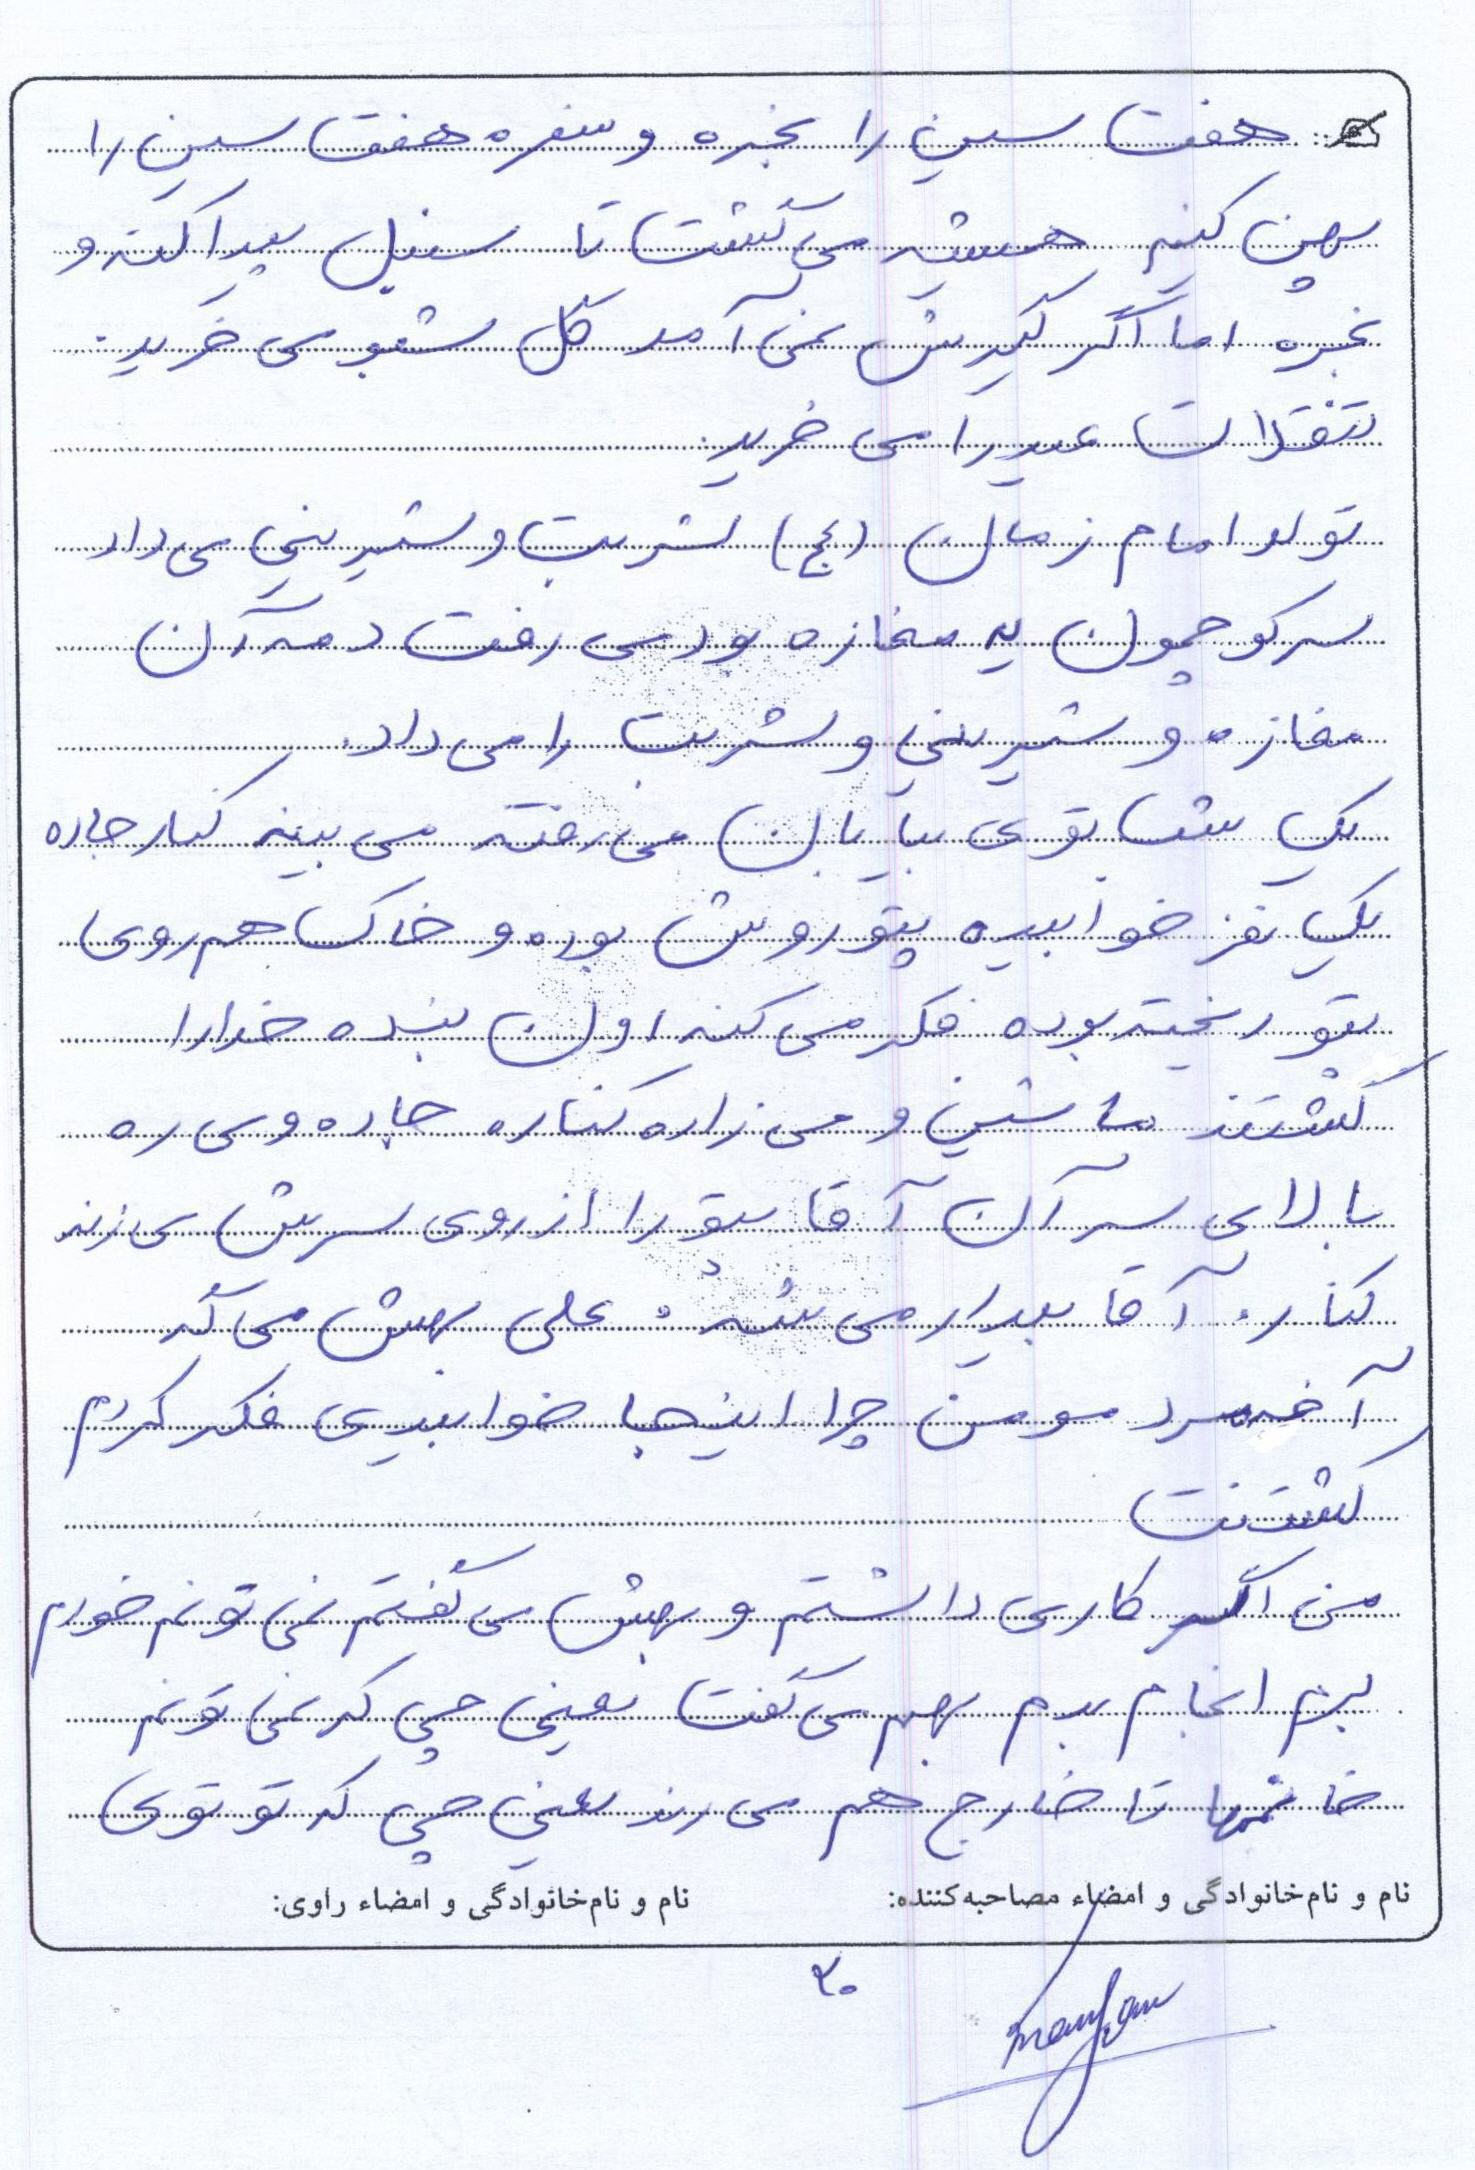 هفت سین را بخره و سفره هفت سین را
پهن کنیم همیشه می گشت تا سنبل پیدا کنه و
بخره اما اگر گیرش نمی آمد گل شببو می خرید.
تنقلات عید را می خرید.
تولد امام زمان (عج) شربت و شیرینی می داد
سر کوچمون یه مغازه بود می رفت دمه آن
مغازه و شیرینی و شربت را می داد.
یک شب توی بیابان می رفته می بینه کنار جاده
یک نفر خوابیده پتو روش بوده و خاک هم روی
پتو ریخته بوده فکر می کنه اون بنده خدا را
کشتند ماشین و می زاره کناره جاده و می ره
بالای سر آن آقا پتو را از روی سرش می زند
کنار. آقا بیدار می شه. علی بهش می گه
آخه مرد مومن چرا اینجا خوابیدی فکر کردم
کشتنت
من اگر کاری داشتم و بهش می گفتم نمی تونم خودم
برم انجام بدم بهم می گفت یعنی چی که نمی تونم
خانمها تا خارج هم می رند یعنی چی که تو توی
نام و نام‌خانوادگی و امضاء مصاحبه‌کننده: نام و نام‌خانوادگی و امضاء راوی:
۲۰